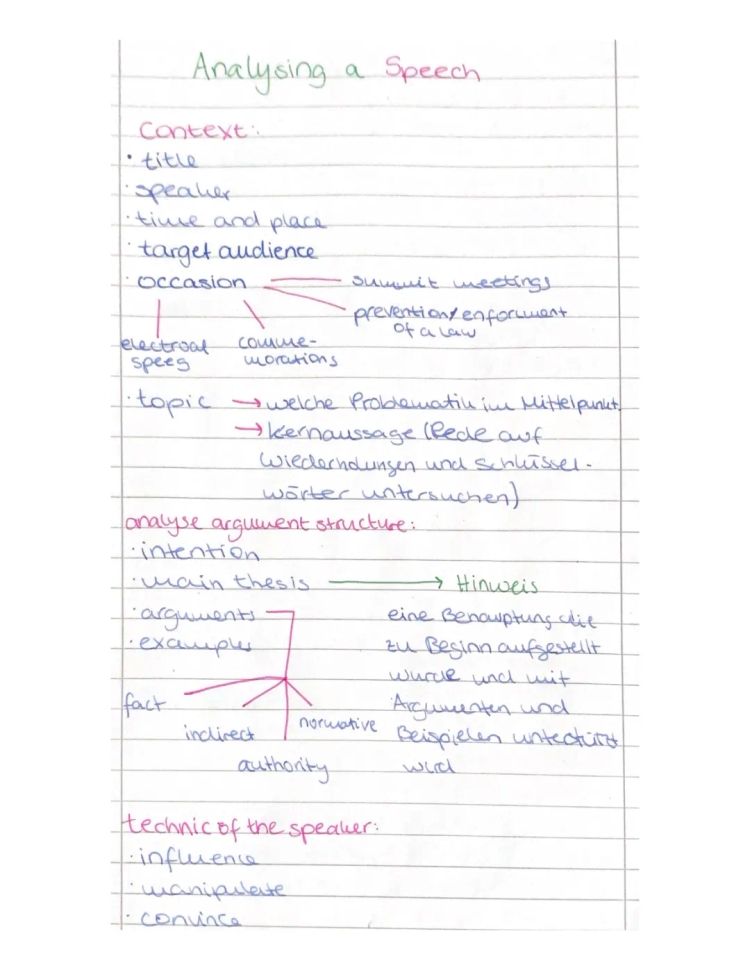 Analysing a Speech
Context:
· title
· speaker
· time and place
· target audience
· occasion
summit meetings
prevention/enforcment
of a law
electroal
speeg
comme-
morations
· topic → welche Problematik im Mittelpunkt
→ Kernaussage (Rede auf
Wiederholungen und Schlüssel-
wörter untersuchen)
analyse argument structure:
· intention
· main thesis → Hinweis
· arguments
· examples
eine Behauptung die
zu Beginn aufgestellt
wurde und mit
Argumenten und
Beispielen unterstützt
wird
fact
indirect
authority
normative
technic of the speaker:
· influence
· manipulate
· convince